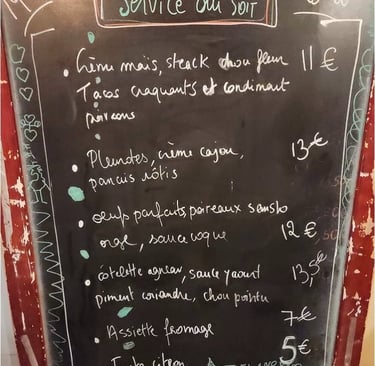 SERVICE DU SOIR
Crème mais, steack chou fleur 11€
Tacos craquants et condiment
poivrons
Pleurotes, crème cajou, 13€
panais rôtis
oeufs parfaits poireaux
orge, sauce 12€
côtelette agneau, sauce yaourt 13,5€
piment coriandre, chou pointu
Assiette fromage 7€
citron 5€